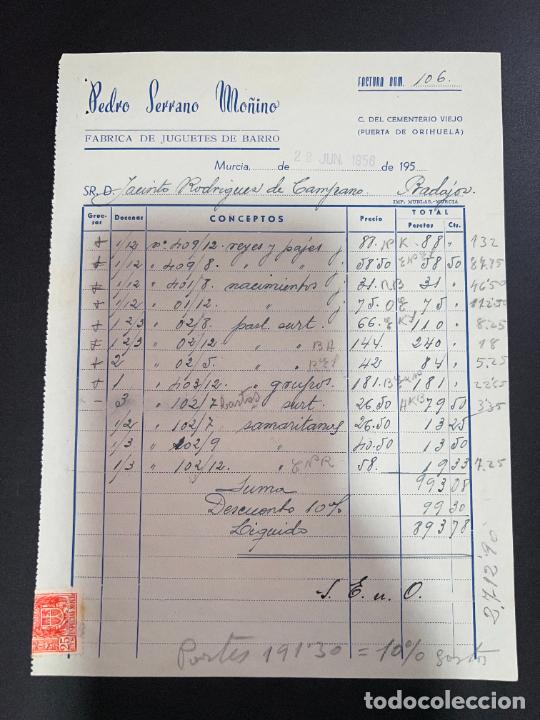 Pedro Serrano Moñino
FACTURA NUM. 106.
FABRICA DE JUGUETES DE BARRO
C. DEL CEMENTERIO VIEJO
(PUERTA DE ORIHUELA)
Murcia, de 22 JUN. 1956 de 195
SR. D. Jacinto Rodrigues de Campano. Badajoz
IMP. MUELAS-MURCIA
Grue-sas Docenas CONCEPTOS Precio TOTAL
Pesetas Cts.
1/12 nº 409/12 reyes y pajes 88. 88 " 132
1/12 " 409/8. " " 58.50 58 50 87.75
1/12 " 401/8 nacimientos 31. 31 " 46'50
1/12 " 01/12 " 75. 75 "
1 2/3 " 02/8. past. surt. 66. 110 " 8.25
1 2/3 " 02/12 " BA 144. 240 " 18
2 " 02/5. " 42. 84 " 5.25
1 " 403/12 " grupos 181. 181 "
3 " 102/7 surt. 26.50 79 50
1/2 " 102/7 samaritanos 26.50 13 25
1/3 " 102/9 " 40.50 13 50
1/3 " 102/12. " 58. 19 33 7.25
Suma 993 08
Descuento 10% 99 30
Liquido 893 78
S. E. u O.
Portes 191'30 = 10%
25
todocoleccion
todocoleccion.net